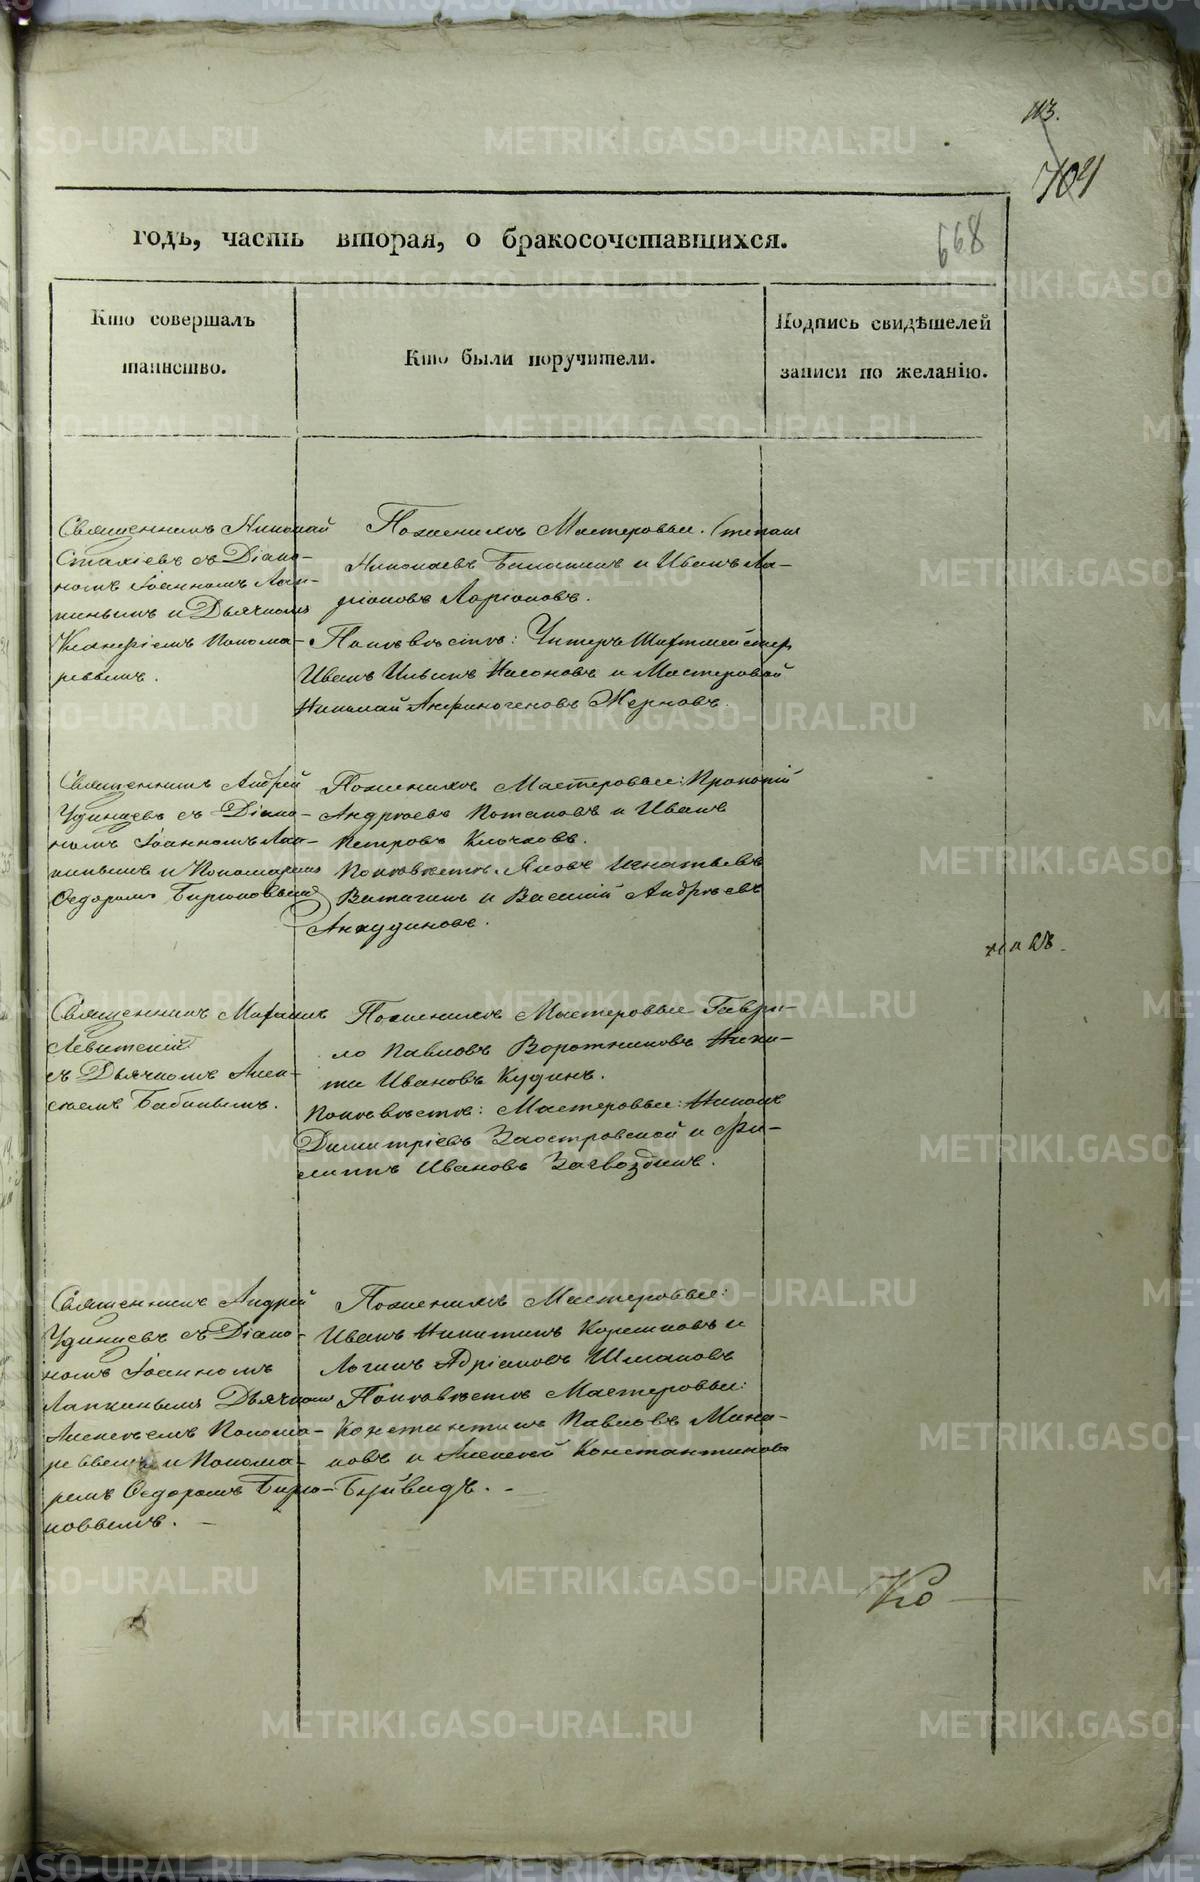 113.
104
668
годъ, часть вторая, о бракосочетавшихся.
Кто совершалъ
таинство.
Кто были поручители.
Подпись свидѣтелей
записи по желанію.
Священникъ Николай
Стахіевъ съ Діако-
номъ Іоанномъ Лап-
кинымъ и Дьячкомъ
Понома-
ревымъ.
По женихѣ Мастеровые. Степанъ
Николаевъ и Иванъ Ла-
ріоновъ Ларіоновъ.
По невѣстѣ: Унтеръ Шихтмейстер
Иванъ Ильинъ Насоновъ и Мастеровой
Николай Анфиногеновъ Жерновъ.
Священникъ Андрей
Удинцевъ съ Діако-
номъ Іоанномъ Лап-
кинымъ и Пономаремъ
Ѳедоромъ Бирюковымъ
По женихѣ Мастеровые: Прокопій
Андреевъ Потаповъ и Иванъ
Петровъ Клочковъ.
По невѣстѣ. Яковъ Игнатьевъ
и Василій Андреевъ
Анкудиновъ.
Священникъ Михаилъ
Левитскій
съ Дьячкомъ Алек-
сѣемъ Бабинымъ.
По женихѣ Мастеровые Гаври-
ло Павловъ Воротниковъ Ники-
та Ивановъ Кудинъ.
По невѣстѣ: Мастеровые: Никола
Димитріевъ Заостровской и Фи-
липпъ Ивановъ Загвоздинъ.
Священникъ Андрей
Удинцевъ съ Діако-
номъ Іоанномъ
Лапкинымъ Дьячкомъ
Алексѣемъ Понома-
ревымъ и Понома-
ремъ Ѳедоромъ Бирю-
ковымъ.
По женихѣ Мастеровые:
Иванъ Никитинъ и
Логинъ Адріановъ Шмаковъ
По невѣстѣ Мастеровые:
Константинъ Павловъ Мина-
ковъ и Алексѣй Константиновъ
METRIKI.GASO-URAL.RU